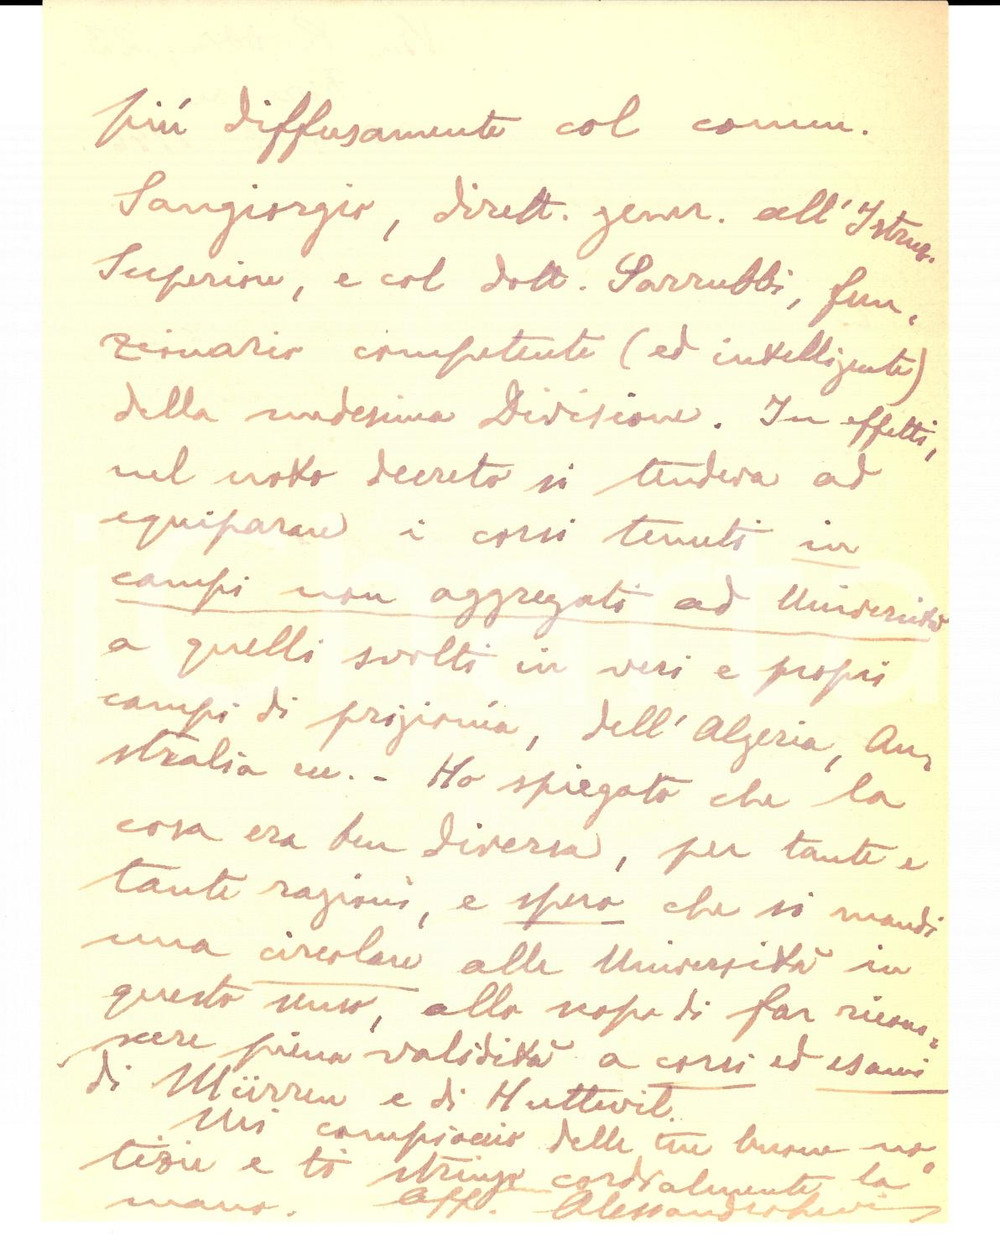 più diffusamente col comm.
Sangiorgio, dirett. gener. all'Istruz.
Superiore, e col dott. Sarrubbi, fun-
zionario competente (ed intelligente)
della medesima Divisione. In effetti,
nel noto decreto si tendeva ad
equiparare i corsi tenuti in
campi non aggregati ad Università
a quelli svolti in veri e propri
campi di prigionía, dell'Algeria, Au-
stralia ecc. - Ho spiegato che la
cosa era ben diversa, per tante e
tante ragioni, e spero che si mandi
una circolare alle Università in
questo senso, allo scopo di far ricono-
scere piena validità a corsi ed esami
di Mürren e di Huttwil.
Mi compiaccio delle tue buone no-
tizie e ti stringo cordialmente la
mano. aff. Alessandro Levi
iCharta